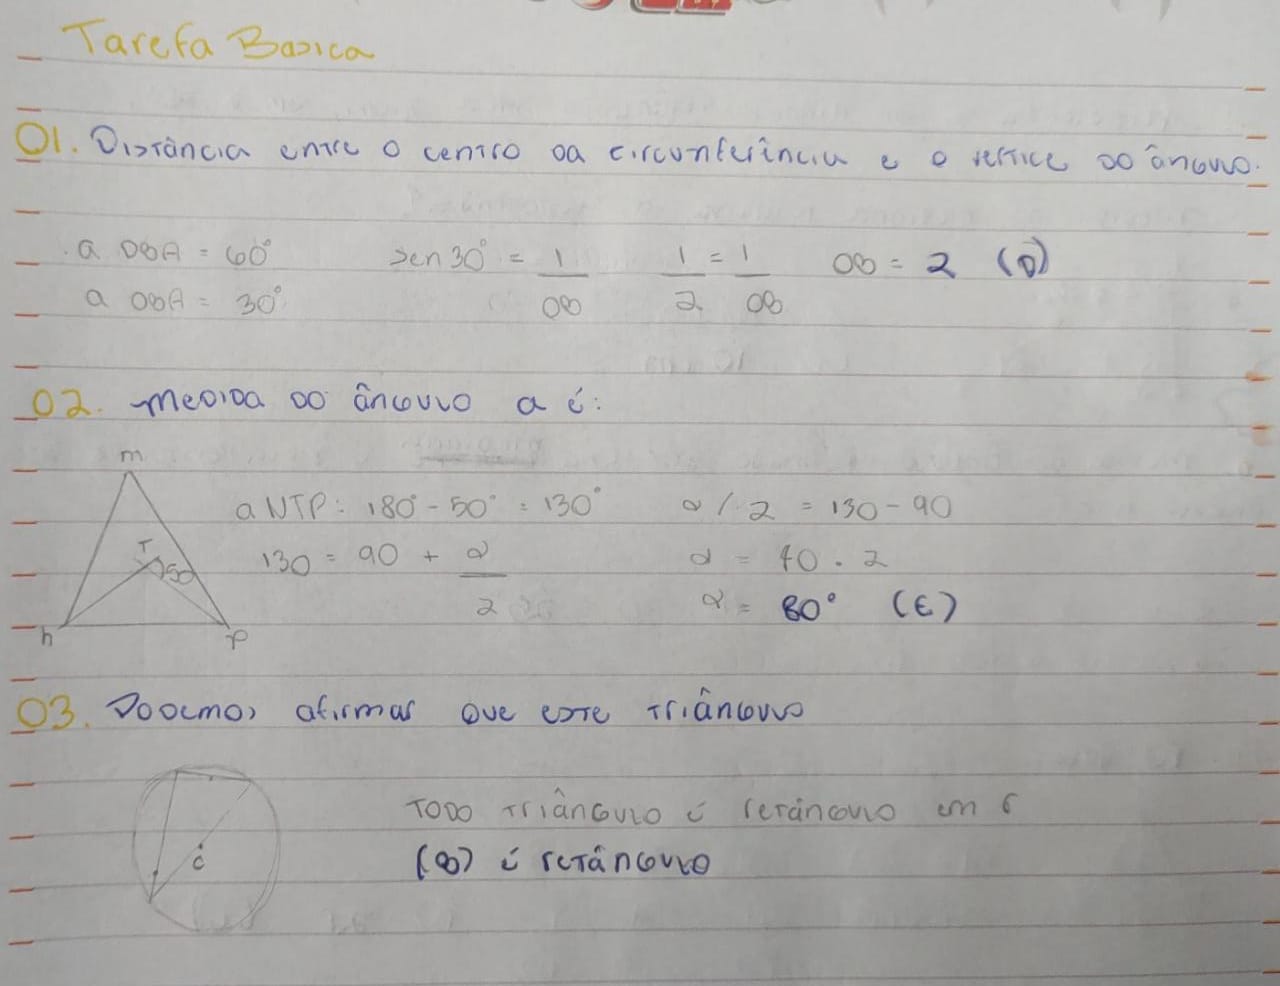 Tarefa Basica
01. Distância entre o centro da circunferência e o vertice do ângulo.
a DBA = 60° sen 30° = 1/OB 1/2 = 1/OB OB = 2 (D)
a OBA = 30°
02. medida do ângulo a é:
m
a NTP: 180° - 50° = 130° α / 2 = 130 - 90
T 50 130 = 90 + α/2 α = 40 . 2
α = 80° (E)
n p
03. Podemos afirmar que este triângulo
Todo triângulo é retângulo em
c (B) é retângulo